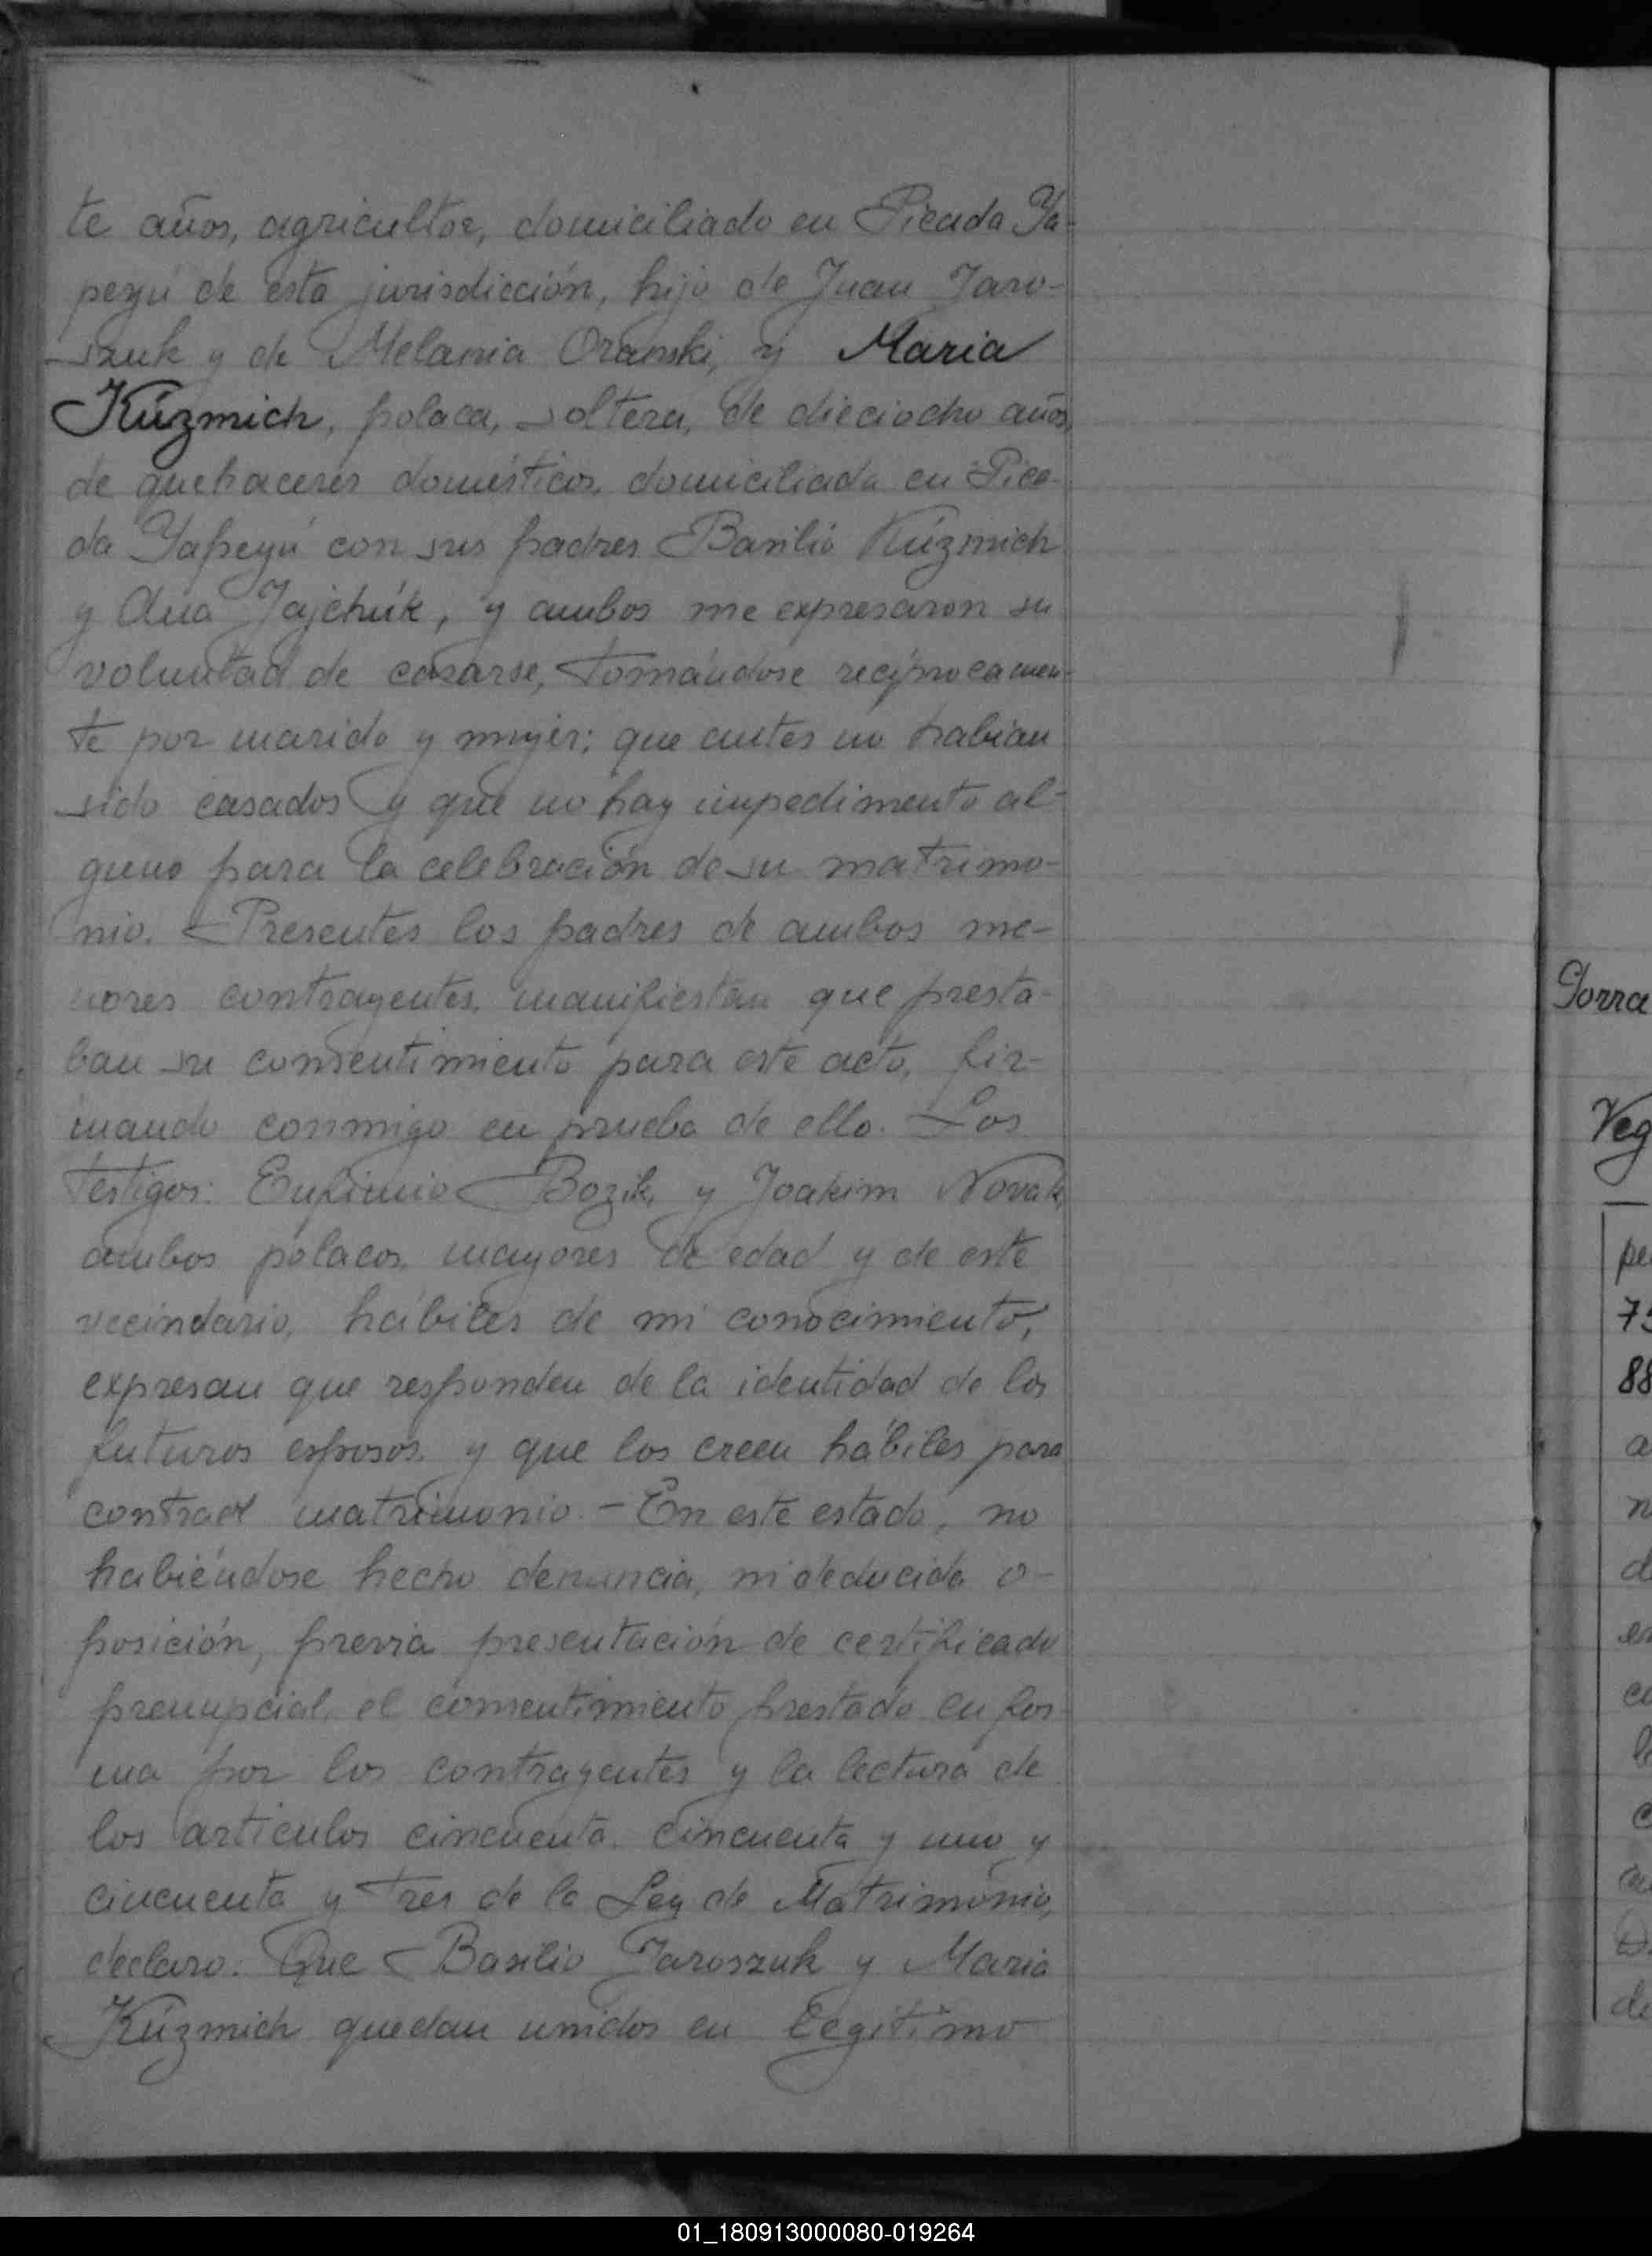 te años, agricultor, domiciliado en Picada Ya-
peyú de esta jurisdicción, hijo de Juan Jaro-
szuk y de Melania Oranski, y Maria
Kúzmich, polaca, soltera, de dieciocho años,
de quehaceres domésticos, domiciliada en Pica-
da Yapeyú con sus padres Basilio Kúzmich
y Ana Jajchúk, y ambos me expresaron su
voluntad de casarse, tomándose recíprocamen-
te por marido y mujer; que antes no habian
sido casados y que no hay impedimento al-
guno para la celebración de su matrimo-
nio. Presentes los padres de ambos me-
nores contrayentes, manifiestan que presta-
ban su consentimiento para este acto, fir-
mando conmigo en prueba de ello. Los
testigos: Eufimio Bozik, y Joakim Novak,
ambos polacos, mayores de edad y de este
vecindario, hábiles de mi conocimiento,
expresan que responden de la identidad de los
futuros esposos, y que los creen hábiles para
contraer matrimonio. - En este estado, no
habiéndose hecho denuncia, ni deducida o-
posición, previa presentación de certificado
prenupcial, el consentimiento prestado en for-
ma por los contrayentes y la lectura de
los articulos cincuenta, cincuenta y uno y
cincuenta y tres de la Ley de Matrimonio,
declaro: Que Basilio Jaroszuk y Maria
Kúzmich quedan unidos en legitimo
Gorra
Veg
pe
88
a
n
d
en
de
01_180913000080-019264